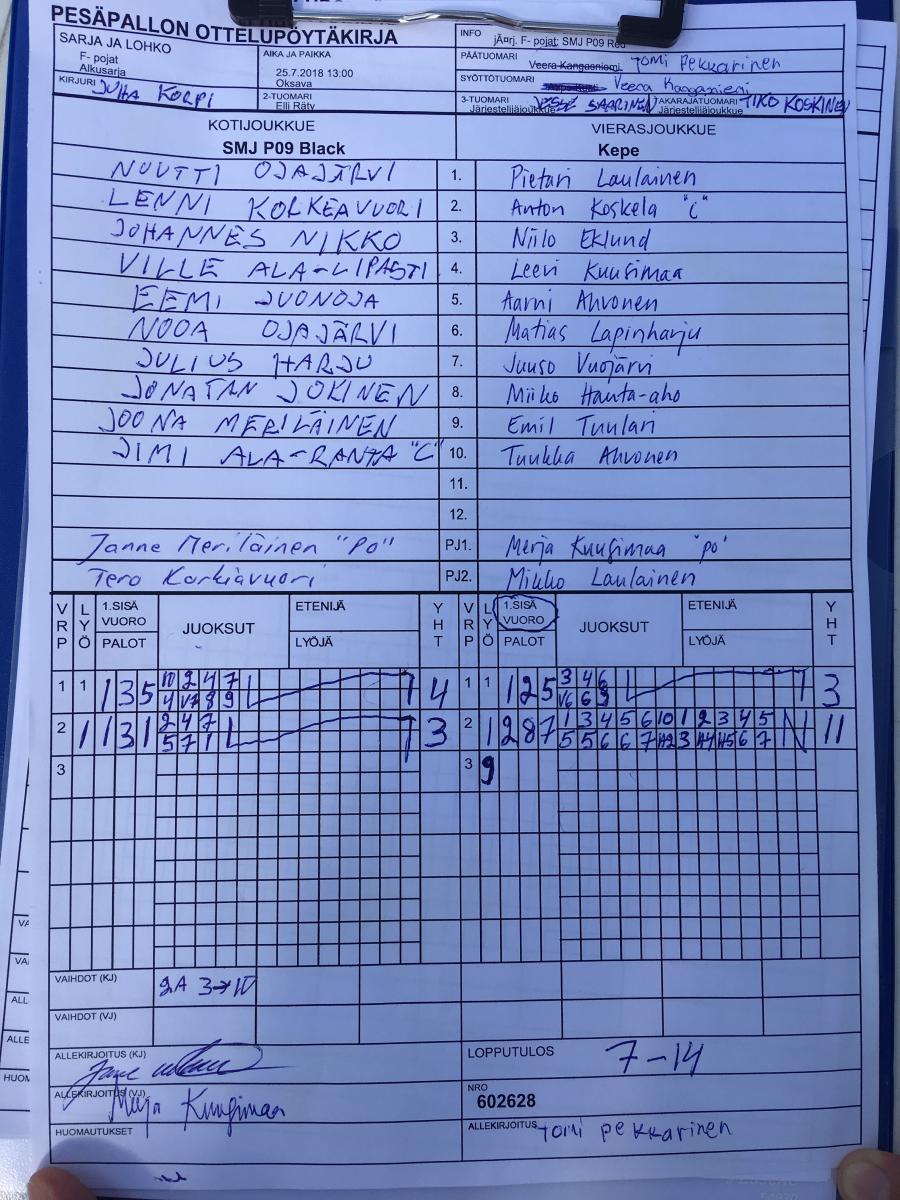 PESÄPALLON OTTELUPÖYTÄKIRJA
SARJA JA LOHKO
F- pojat
Alkusarja
AIKA JA PAIKKA
25.7.2018 13:00
Oksava
KIRJURI JUHA KORPI
2-TUOMARI
Elli Räty
INFO
jÃ¤rj. F- pojat; SMJ P09 Red
PÄÄTUOMARI Veera Kangasniemi TOMI PEKKARINEN
SYÖTTÖTUOMARI Veera Kangasniemi
3-TUOMARI SAARINEN
Järjestelijäjoukkue
TAKARAJATUOMARI TIKO KOSKINEN
Järjestelijäjoukkue
KOTIJOUKKUE VIERASJOUKKUE
SMJ P09 Black Kepe
NUUTTI OJAJÄRVI 1. Pietari Laulainen
LENNI KORKEAVUORI 2. Anton Koskela "C"
JOHANNES NIKKO 3. Niilo Eklund
VILLE ALA-LIPASTI 4. Leevi Kuusimaa
EEMI JUONOJA 5. Aarni Ahvonen
NOOA OJAJÄRVI 6. Matias Lapinharju
JULIUS HARJU 7. Juuso Vuojärvi
JONATAN JOKINEN 8. Miiko Hauta-aho
JOONA MERILÄINEN 9. Emil Tuulari
JIMI ALA-RANTA "C" 10. Tuukka Ahvonen
11.
12.
Janne Meriläinen "PO" PJ1. Merja Kuusimaa "po"
Tero Korkiavuori PJ2. Mikko Laulainen
VRP LYÖ 1.SISÄ VUORO PALOT JUOKSUT ETENIJÄ LYÖJÄ YHT VRP LYÖ 1.SISÄ VUORO PALOT JUOKSUT ETENIJÄ LYÖJÄ YHT
1 1 1 3 5 10 2 4 7 4 1 1 1 2 5 3 4 6 3
4 V7 8 9 V6 6 9
2 1 1 3 1 2 4 7 3 2 1 2 8 7 1 3 4 5 6 10 1 2 3 4 5 11
5 7 1 5 5 6 6 7 A2 3 A4 A5 6 7
3 3 9
VAIHDOT (KJ) 2A 3→10
VAIHDOT (VJ)
ALLEKIRJOITUS (KJ)
LOPPUTULOS 7-14
ALLEKIRJOITUS (VJ) Merja Kuusimaa
NRO
602628
HUOMAUTUKSET
ALLEKIRJOITUS Tomi Pekkarinen